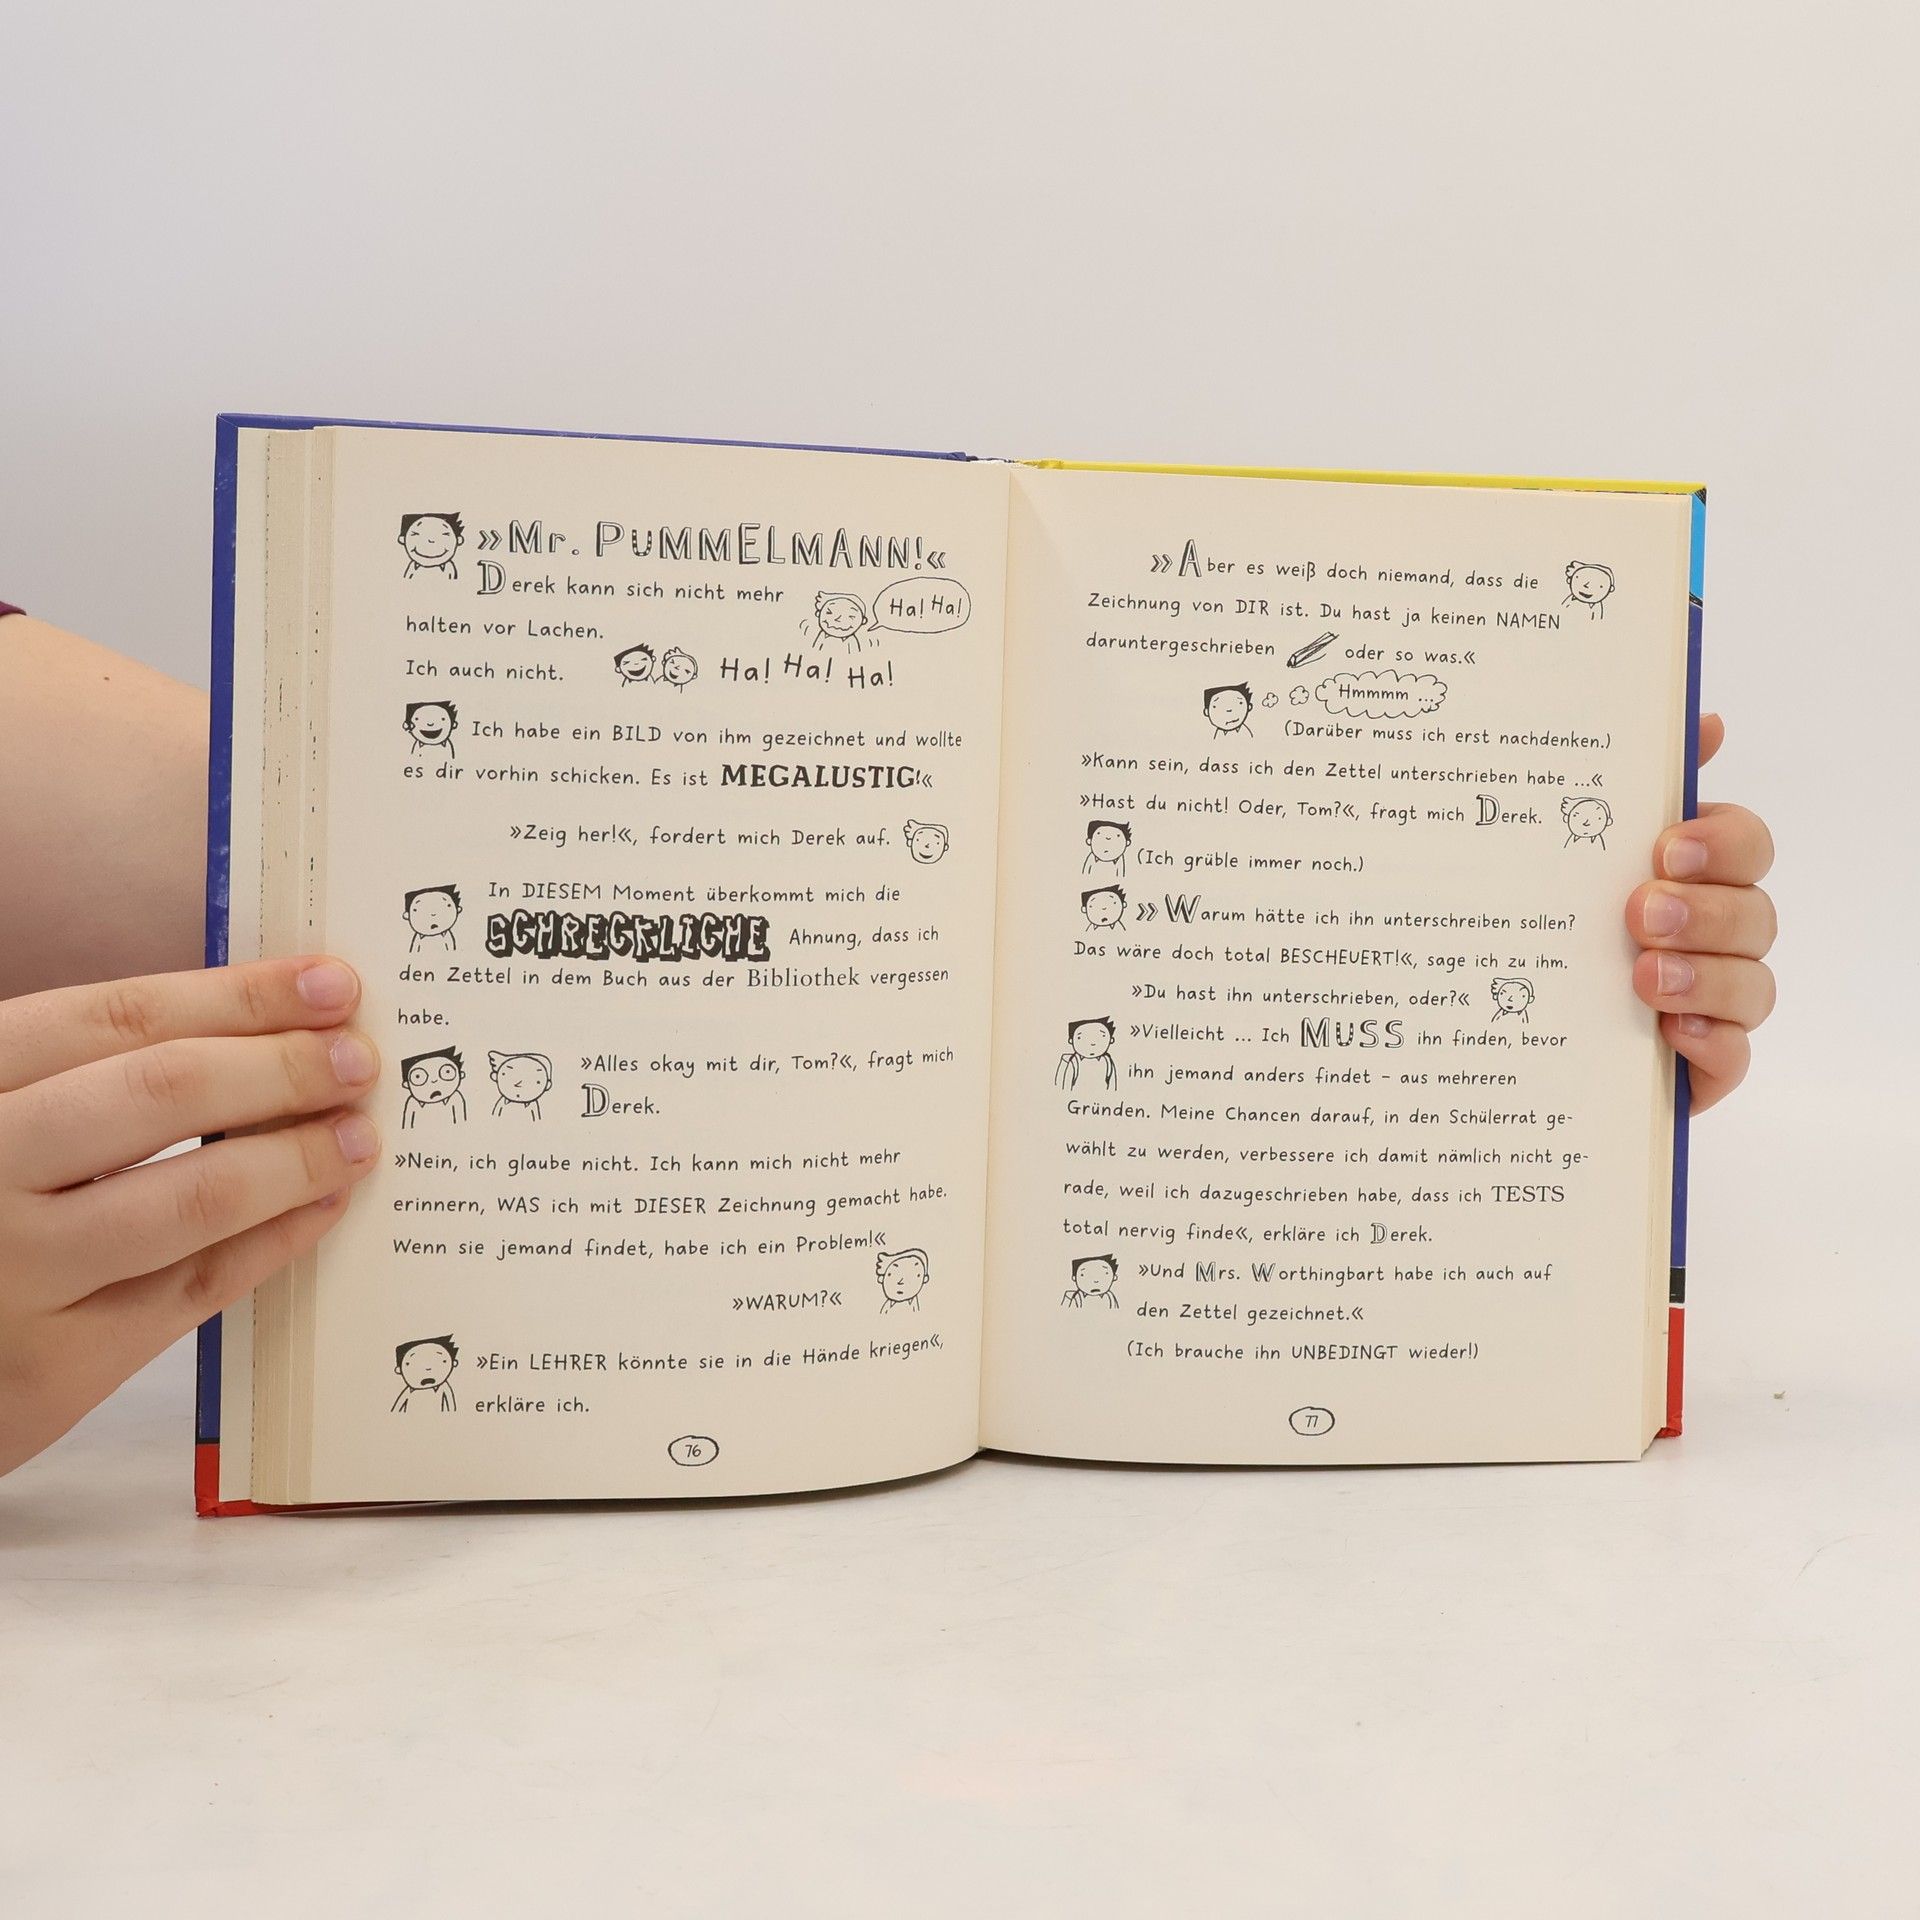 »Mr. PUMMELMANN!«
Derek kann sich nicht mehr
Ha! Ha!
halten vor Lachen.
Ich auch nicht.
Ha! Ha! Ha!
Ich habe ein BILD von ihm gezeichnet und wollte
es dir vorhin schicken. Es ist MEGALUSTIG!«
»Zeig her!«, fordert mich Derek auf.
In DIESEM Moment überkommt mich die
SCHRECKLICHE Ahnung, dass ich
den Zettel in dem Buch aus der Bibliothek vergessen
habe.
»Alles okay mit dir, Tom?«, fragt mich
Derek.
»Nein, ich glaube nicht. Ich kann mich nicht mehr
erinnern, WAS ich mit DIESER Zeichnung gemacht habe.
Wenn sie jemand findet, habe ich ein Problem!«
»WARUM?«
»Ein LEHRER könnte sie in die Hände kriegen«,
erkläre ich.
76
»Aber es weiß doch niemand, dass die
Zeichnung von DIR ist. Du hast ja keinen NAMEN
daruntergeschrieben oder so was.«
Hmmmm ...
(Darüber muss ich erst nachdenken.)
»Kann sein, dass ich den Zettel unterschrieben habe ...«
»Hast du nicht! Oder, Tom?«, fragt mich Derek.
(Ich grüble immer noch.)
»Warum hätte ich ihn unterschreiben sollen?
Das wäre doch total BESCHEUERT!«, sage ich zu ihm.
»Du hast ihn unterschrieben, oder?«
»Vielleicht ... Ich MUSS ihn finden, bevor
ihn jemand anders findet – aus mehreren
Gründen. Meine Chancen darauf, in den Schülerrat ge-
wählt zu werden, verbessere ich damit nämlich nicht ge-
rade, weil ich dazugeschrieben habe, dass ich TESTS
total nervig finde«, erkläre ich Derek.
»Und Mrs. Worthingbart habe ich auch auf
den Zettel gezeichnet.«
(Ich brauche ihn UNBEDINGT wieder!)
77